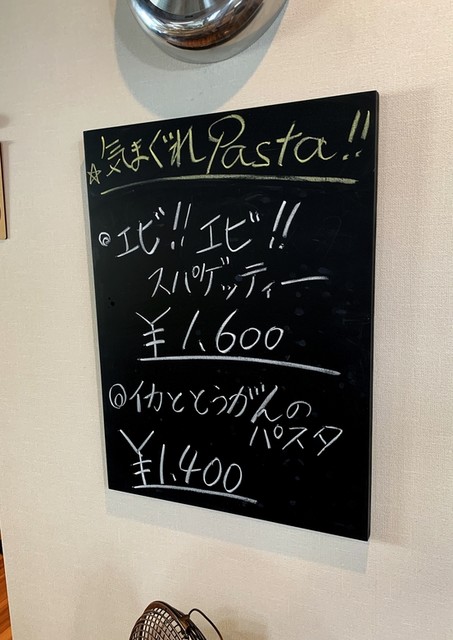 ☆気まぐれPasta!!
◎エビ!!エビ!!
スパゲッティー
¥1,600
◎イカととうがんの
パスタ
¥1,400